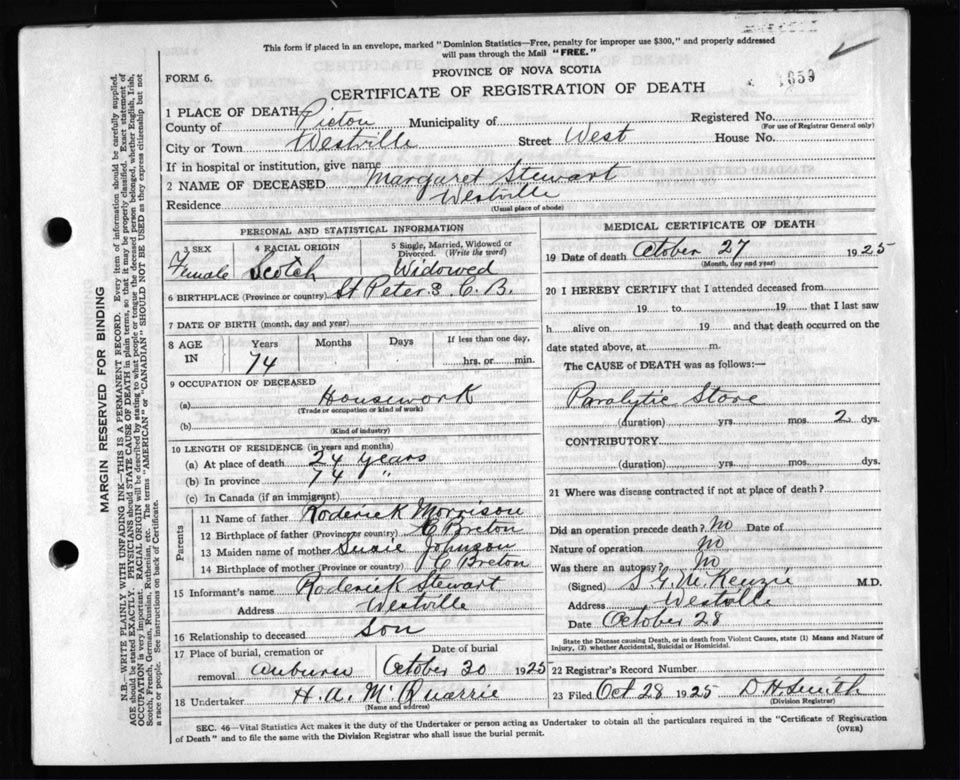 This form if placed in an envelope, marked "Dominion Statistics—Free, penalty for improper use $300," and properly addressed
will pass through the Mail "FREE."
PROVINCE OF NOVA SCOTIA
FORM 6.
CERTIFICATE OF REGISTRATION OF DEATH
1659
1 PLACE OF DEATH
County of Pictou Municipality of Registered No.
(For use of Registrar General only)
City or Town Westville Street West House No.
If in hospital or institution, give name
2 NAME OF DECEASED Margaret Stewart
Residence Westville
(Usual place of abode)
PERSONAL AND STATISTICAL INFORMATION
3 SEX 4 RACIAL ORIGIN 5 Single, Married, Widowed or Divorced. (Write the word)
Female Scotch Widowed
6 BIRTHPLACE (Province or country) St Peters C. B.
7 DATE OF BIRTH (month, day and year)
8 AGE IN Years Months Days If less than one day,
74 hrs. or min.
9 OCCUPATION OF DECEASED
(a) Housework
(Trade or occupation or kind of work)
(b)
(Kind of industry)
10 LENGTH OF RESIDENCE (in years and months)
(a) At place of death 24 years
(b) In province 74 "
(c) In Canada (if an immigrant)
Parents
11 Name of father Roderick Morrison
12 Birthplace of father (Province or country) C Breton
13 Maiden name of mother Susie Johnson
14 Birthplace of mother (Province or country) C Breton
15 Informant's name Roderick Stewart
Address Westville
16 Relationship to deceased Son
17 Place of burial, cremation or removal Date of burial
Auburn October 30 1925
18 Undertaker H. A. McQuarrie
(Name and address)
MEDICAL CERTIFICATE OF DEATH
19 Date of death October 27 1925
(Month, day and year)
20 I HEREBY CERTIFY that I attended deceased from
19 to 19 that I last saw
h alive on 19 and that death occurred on the
date stated above, at m.
The CAUSE OF DEATH was as follows:
Paralytic Stroe
(duration) yrs. mos. 2 dys.
CONTRIBUTORY
(duration) yrs. mos. dys.
21 Where was disease contracted if not at place of death?
Did an operation precede death? No Date of
Nature of operation No
Was there an autopsy? No
(Signed) S G McKenzie M.D.
Address Westville
Date October 28
State the Disease causing Death, or in death from Violent Causes, state (1) Means and Nature of
Injury, (2) whether Accidental, Suicidal or Homicidal.
22 Registrar's Record Number
23 Filed Oct 28 1925 D H Smith
(Division Registrar)
SEC. 46—Vital Statistics Act makes it the duty of the Undertaker or person acting as Undertaker to obtain all the particulars required in the "Certificate of Registration
of Death" and to file the same with the Division Registrar who shall issue the burial permit.
(OVER)
MARGIN RESERVED FOR BINDING
N.B.—WRITE PLAINLY WITH UNFADING INK—THIS IS A PERMANENT RECORD. Every item of information should be carefully supplied.
AGE should be stated EXACTLY. PHYSICIANS should STATE CAUSE OF DEATH in plain terms, so that it may be properly classified. Exact statement of
OCCUPATION is very important. RACIAL ORIGIN will be described by stating to what people or tongue the deceased person belonged, whether English, Irish,
Scotch, French, German, Russian, Ruthenian, etc. The terms "AMERICAN" or "CANADIAN" SHOULD NOT BE USED as they express citizenship but not
a race or people. See instructions on back of Certificate.